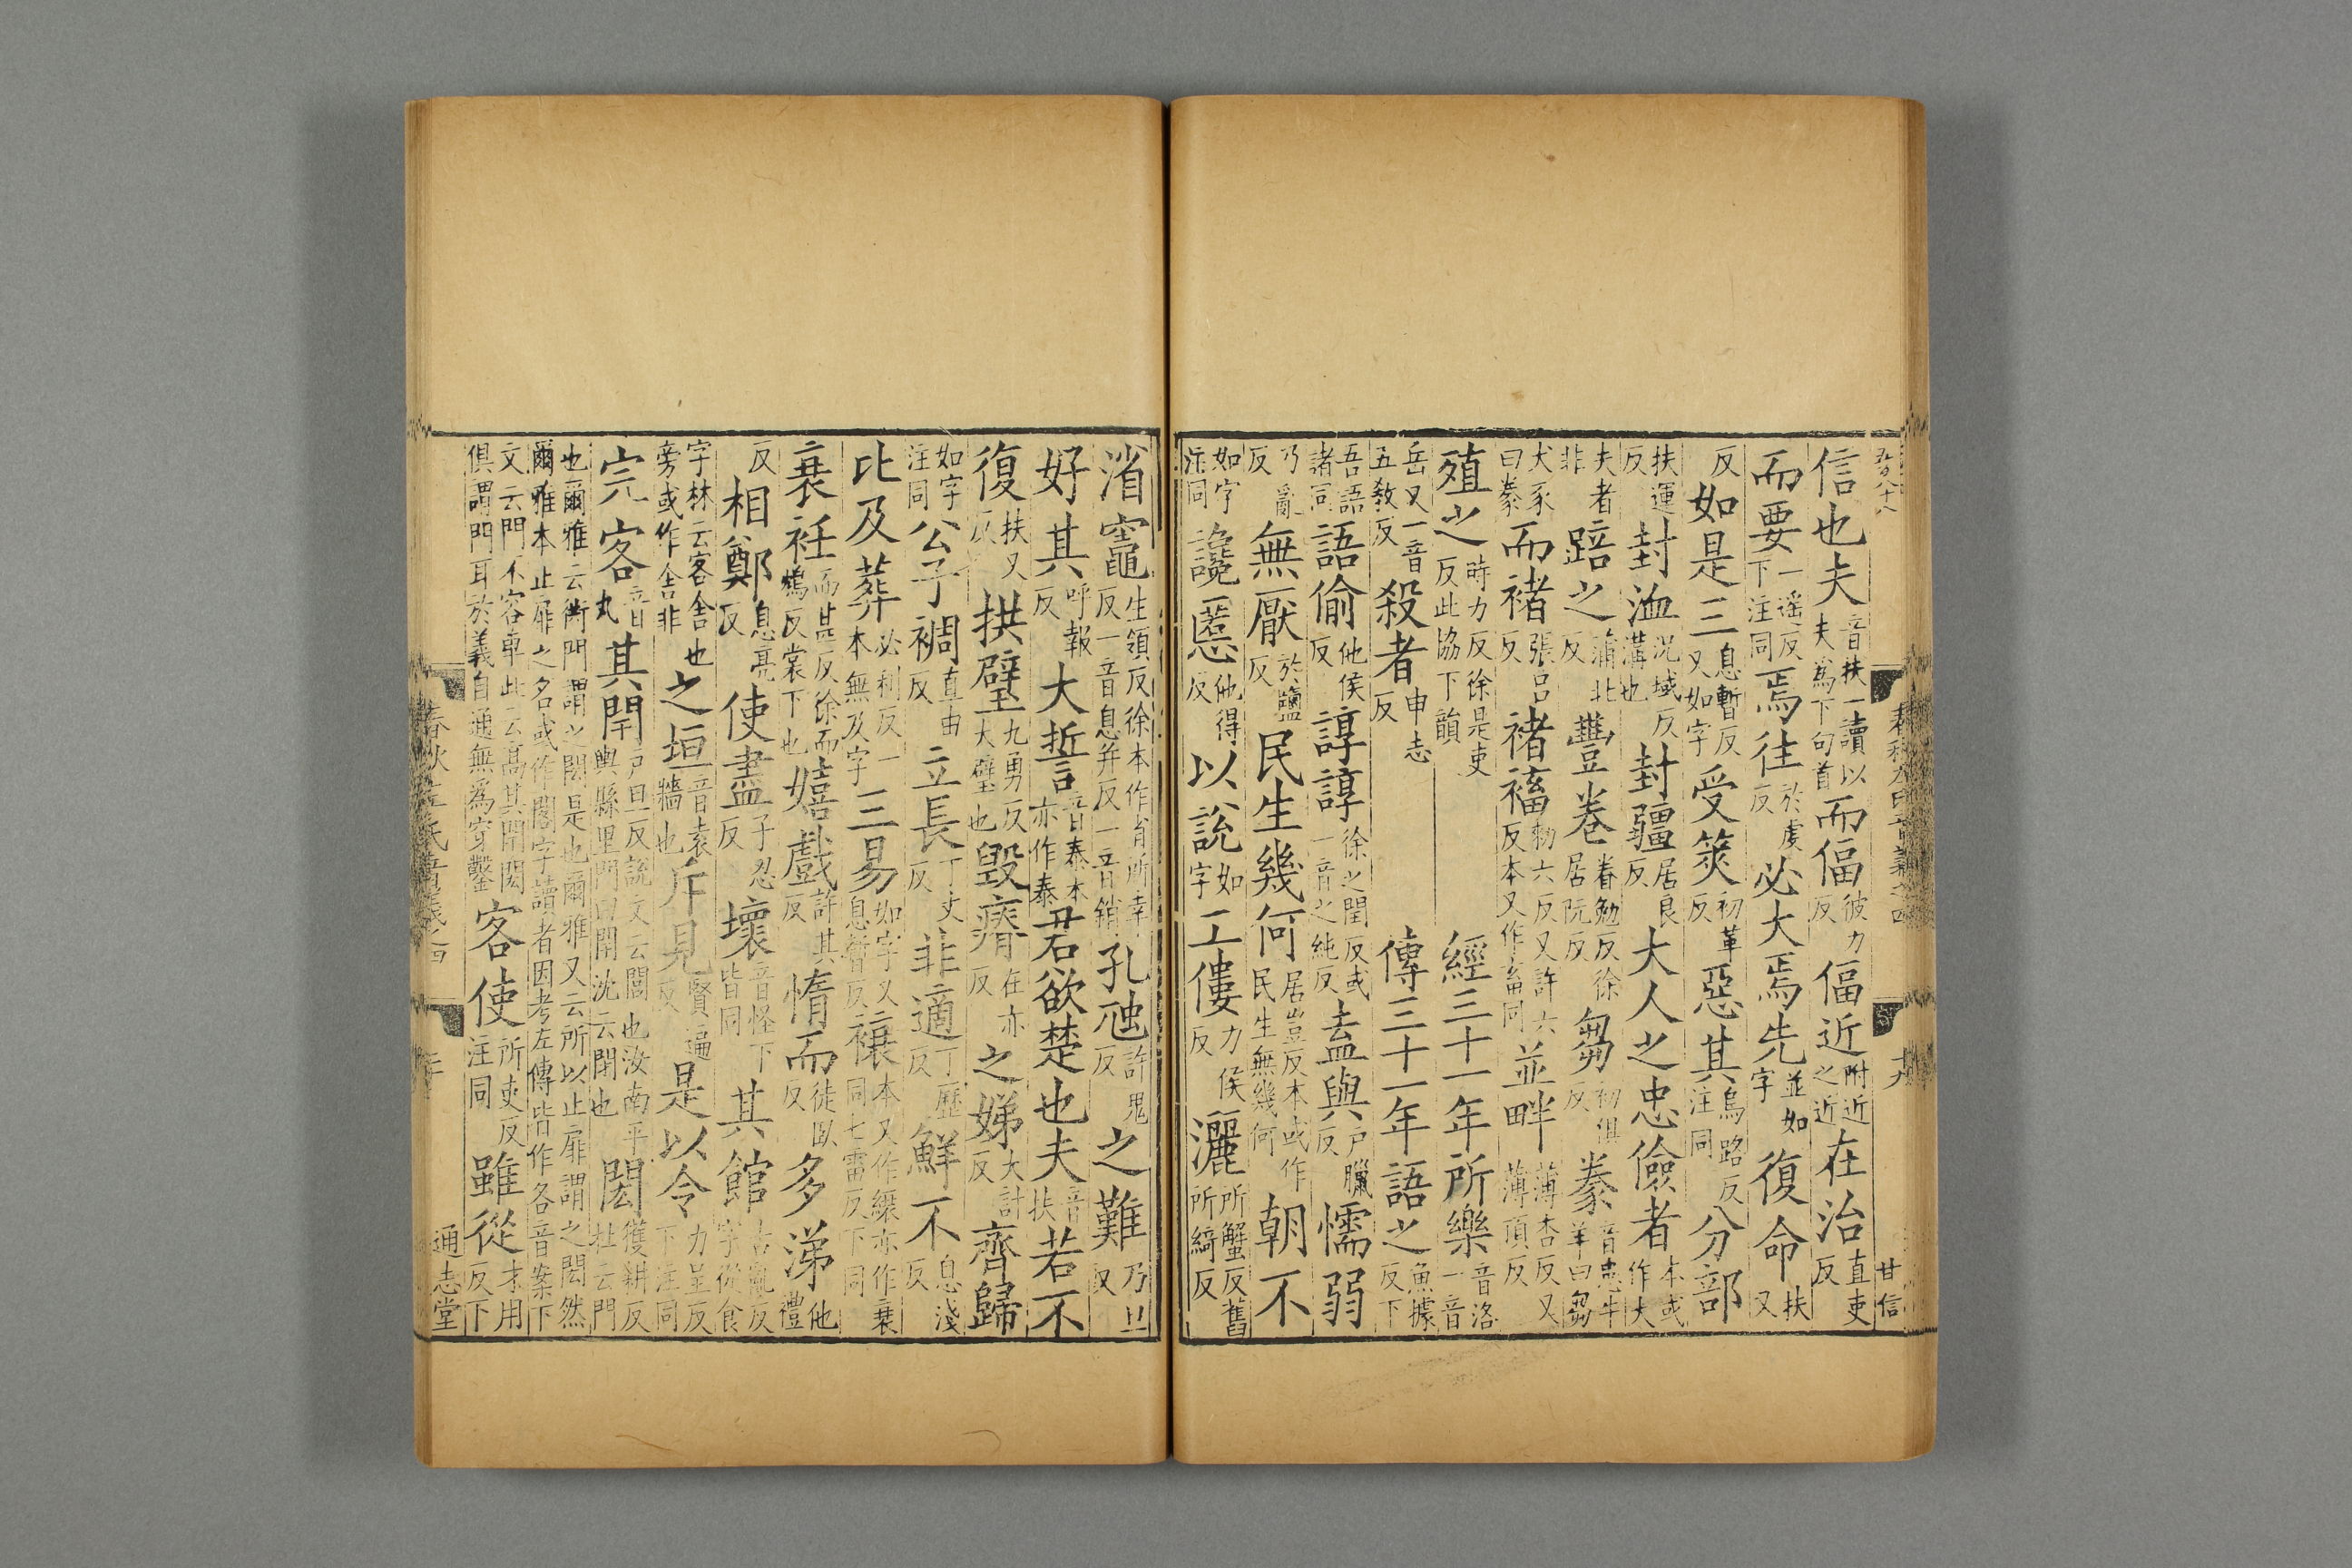 五百八十八 春秋左氏音義之四 十九 甘信
信也夫音扶一讀以夫爲下句首而偪彼力反偪近附近之近在治直吏反
而要一遥反下注同焉往於虔反必大焉先並如字復命扶又
反如是三息暫反又如字受筴初革反惡其烏路反注同分部
扶運反封洫況域反溝也封疆居良反大人之忠儉者本或作大
夫者非踣之蒲北反豐卷眷勉反徐居阮反芻初俱反豢音患牛羊曰芻
犬豕曰豢而褚張呂反褚稸勑六反又許六反本又作畜同並畔薄杏反又薄頂反
殖之時力反徐是吏反此協下韻 經三十一年所樂音洛一音
岳又一音五敎反殺者申志反 傳三十一年語之魚據反下
吾語諸同語偷他侯反諄諄徐之閏反或一音之純反盍與户臘反懦弱
乃亂反無厭於鹽反民生幾何居豈反本或作民生無幾何朝不
如字注同讒慝他得反以說如字工僂力侯反灑所蟹反舊所綺反
渻竈生領反徐本作省所幸反一音息井反一音銷孔虺許鬼反之難乃旦反
好其呼報反大誓音泰本亦作泰君欲楚也夫音扶若不
復扶又反拱璧九勇反大璧也毁瘠在亦反之娣大計反齊歸
如字注同公子裯直由反立長丁丈反非適丁歷反鮮不息淺反
比及葬必利反一本無及字三易如字又息暫反衰本又作縗亦作蓑同七雷反下同
衰衽而甚反徐而鴆反裳下也嬉戲許其反惰而徒臥反多涕他禮
反相鄭息亮反使盡子忍反壞音怪下皆同其館古亂反字從食
字林云客舍也旁或作舍非之垣音袁牆也斥見賢遍反是以令力呈反下注同
完客音丸其閈户旦反說文云閭也汝南平輿縣里門曰閈沈云閉也閎獲耕反杜云門
也爾雅云衖門謂之閎是也爾雅又云所以止扉謂之閎然爾雅本止扉之名或作閣字讀者因考左傳皆作各音案下
文云門不容車此云高其閈閎俱謂門耳於義自通無爲穿鑿客使所吏反注同雖從才用反下
春秋左氏音義之四 二十 通志堂